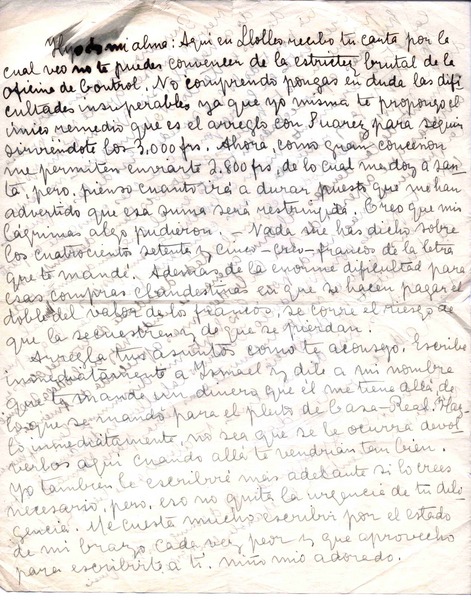 Hijo de mi alma: Aqui en Llolleo recibo tu carta por la
cual veo no te puedes convencer de la estrictez brutal de la
oficina de Control. No comprendo pongas en duda las difi
cultades insuperables ya que yo misma te propongo el
único remedio que es el arreglo con Suarez para seguir
sirviéndote los 3.000 frs. Ahora, como gran concesion
me permiten enviarte 2.800 frs, de lo cual me doy a san-
ta, pero, pienso cuanto irá a durar puesto que me han
advertido que esa suma será restringida. Creo que mis
lágrimas algo pudieron. - Nada me has dicho sobre
los cuatrocientos setenta y cinco - creo - francos de la letra
que te mandé. Ademas de la enorme dificultad para
esas compras clandestinas en que se hacen pagar el
doble del valor de los francos, se corre el riesgo de
que la secuestren y de que se pierdan.
Arregla tus asuntos como te aconsejo. Escribe
inmediatamente a Ysmael y dile a mi nombre
que te mande ese dinero que él me tiene allá de
lo que se mandó para el pleito de Casa-Real. Haz
lo inmediatamente, no sea que se le ocurra devol
verlos aqui cuando allá te vendrian tan bien.
Yo tambien le escribiré mas adelante si lo crees
necesario, pero, eso no quita la urgencia de tu dili
gencia. Me cuesta mucho escribir por el estado
de mi brazo cada vez peor y que aprovecho
para escribirte a ti, niño mio adorado.